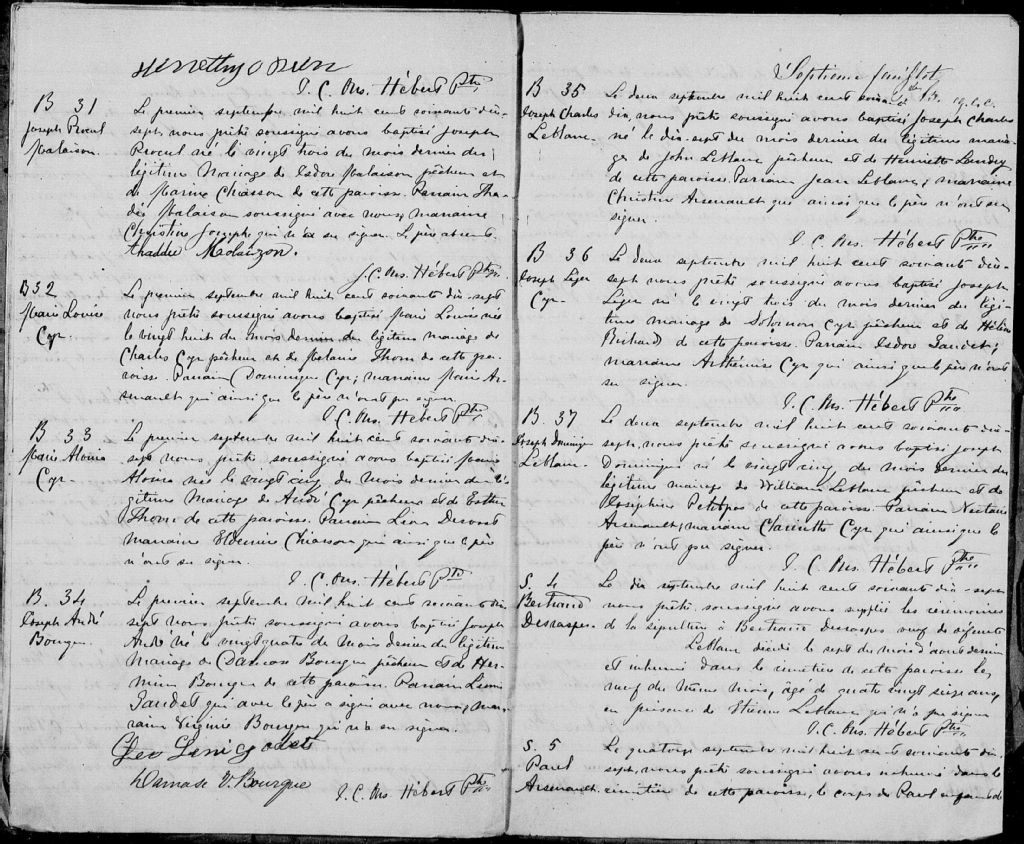 J. C. Ms. Hébert Ptre
B 31
Joseph Procul
Malaison.
Le premier septembre mil huit cent soixante dix-
sept, nous prêtre soussigné avons baptisé Joseph
Procul né le vingt trois du mois dernier du
légitime mariage de Isdore Malaison pêcheur et
de Marine Chiasson de cette paroisse. Parrain Tha-
dée Malaison soussigné avec nous, marraine
Christine Joseph qui n'a su signer. Le père absent.
Thaddée Molaizon.
J. C. Ms. Hébert Ptre
B 32
Marie Louise
Cyr.
Le premier septembre mil huit cent soixante dix-sept
nous prêtre soussigné avons baptisé Marie Louise née
le vingt huit du mois dernier du légitime mariage de
Charles Cyr pêcheur et de Melanie Thorn de cette pa-
roisse. Parrain Dominique Cyr; marraine Marie Ar-
senault qui ainsi que le père n'ont pu signer.
J. C. Ms. Hébert Ptre
B 33
Marie Aloisia
Cyr.
Le premier septembre mil huit cent soixante dix-
sept nous prêtre soussigné avons baptisé Marie
née le vingt cinq du mois dernier du lé-
gitime mariage de André Cyr pêcheur et de Esther
Thorn de cette paroisse. Parrain Léon
marraine Chiasson qui ainsi que le père
n'ont su signer.
J. C. Ms. Hébert Ptre
B. 34
Joseph André
Bourque
Le premier septembre mil huit cent soixante dix-
sept nous prêtre soussigné avons baptisé Joseph
André né le vingt quatre du mois dernier du légitime
mariage de Damase Bourque pêcheur et de Her-
mine Bourque de cette paroisse. Parrain
Gaudet qui avec le père a signé avec nous, mar-
raine Virginie Bourque qui n'a su signer.
Damase V. Bourque
J. C. Ms Hébert Ptre
Septième feuillet
B 35
Joseph Charles
LeBlanc.
Le deux septembre mil huit cent soixante
dix, nous prêtre soussigné avons baptisé Joseph Charles
né le dix-sept du mois dernier du légitime maria-
ge de John LeBlanc pêcheur et de Henriette Landry
de cette paroisse. Parrain Jean LeBlanc; marraine
Christine Arsenault qui ainsi que le père n'ont su
signer.
J. C. Ms. Hébert Ptre
B 36
Joseph Léger
Cyr.
Le deux septembre mil huit cent soixante dix-
sept nous prêtre soussigné avons baptisé Joseph
Léger né le vingt trois du mois dernier du légi-
time mariage de Solomon Cyr pêcheur et de Hélène
Richard de cette paroisse. Parrain Isdore Gaudet;
marraine Arthémise Cyr qui ainsi que le père n'ont
su signer.
J. C. Ms. Hébert Ptre
B 37
Joseph Dominique
LeBlanc.
Le deux septembre mil huit cent soixante dix-
sept, nous prêtre soussigné avons baptisé Joseph
Dominique né le vingt cinq du mois dernier du
légitime mariage de William LeBlanc pêcheur et de
Joséphine Petitpas de cette paroisse. Parrain Nectaire
Arsenault; marraine Clarinthe Cyr qui ainsi que le
père n'ont pu signer.
J. C. Ms. Hébert Ptre
S. 4
Bertrand
Desraspes.
Le dix septembre mil huit cent soixante dix-sept
nous prêtre soussigné avons suppléé les cérémonies
de la sépulture à Bertrand Desraspes veuf de défunte
LeBlanc décédé le sept du mois d'août dernier
et inhumé dans le cimetière de cette paroisse le
neuf du même mois, âgé de quatre vingt seize ans,
en présence de Etienne LeBlanc qui n'a pu signer
J. C. Ms. Hébert Ptre
S. 5
Paul
Arsenault.
Le quatorze septembre mil huit cent soixante dix-
sept, nous prêtre soussigné avons inhumé dans le
cimetière de cette paroisse, le corps de Paul enfant de